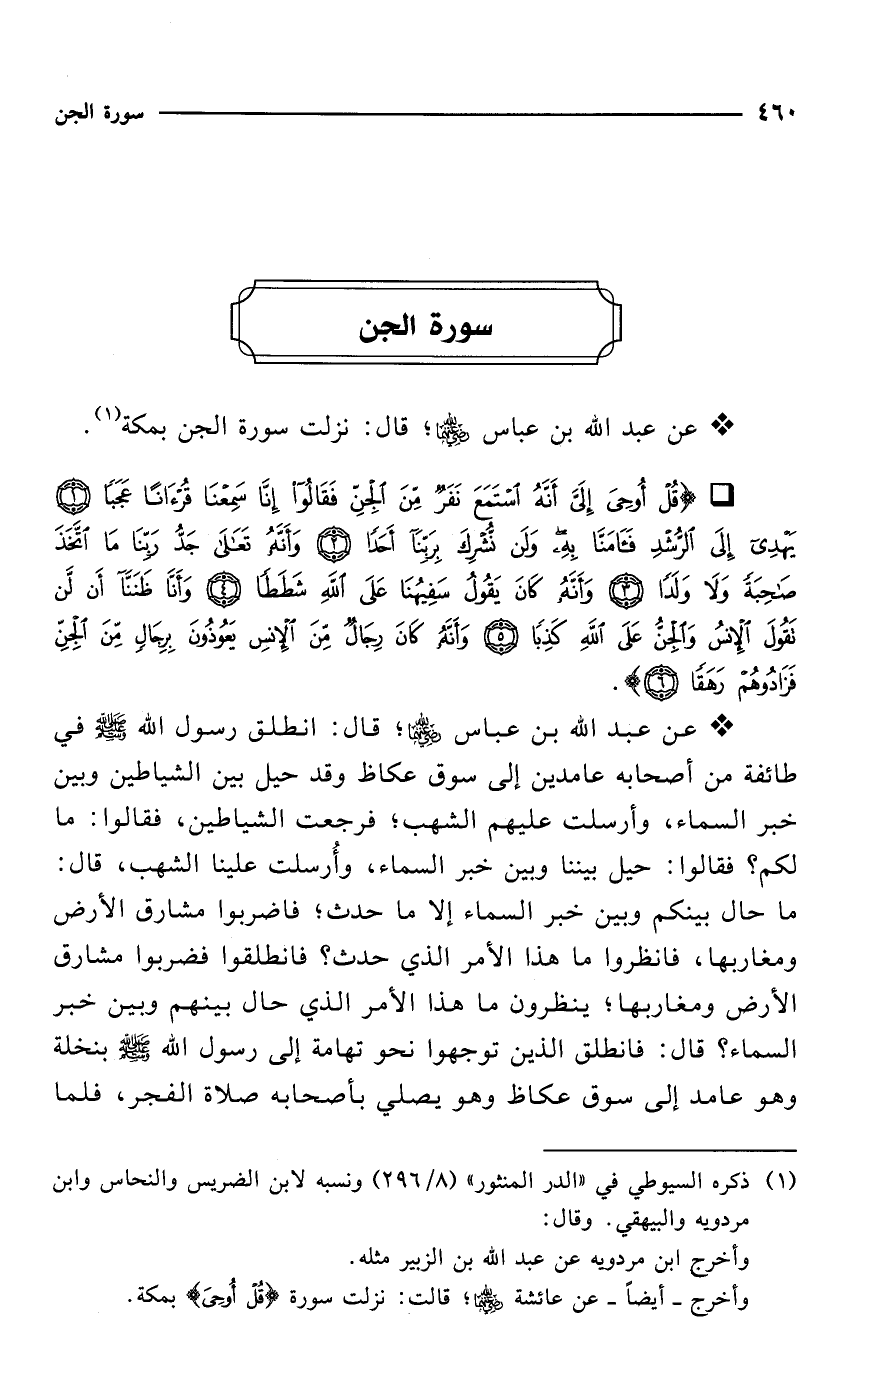 ٤٦٠ سورة الجن
سورة الجن
❖ عن عبد الله بن عباس ﵄؛ قال: نزلت سورة الجن بمكة(١).
❑ ﴿قُلْ أُوحِيَ إِلَيَّ أَنَّهُ ٱسْتَمَعَ نَفَرٌ مِّنَ ٱلْجِنِّ فَقَالُوٓا۟ إِنَّا سَمِعْنَا قُرْءَانًا عَجَبًا ۝١
يَهْدِىٓ إِلَى ٱلرُّشْدِ فَـَٔامَنَّا بِهِۦ وَلَن نُّشْرِكَ بِرَبِّنَآ أَحَدًا ۝٢ وَأَنَّهُۥ تَعَـٰلَىٰ جَدُّ رَبِّنَا مَا ٱتَّخَذَ
صَـٰحِبَةً وَلَا وَلَدًا ۝٣ وَأَنَّهُۥ كَانَ يَقُولُ سَفِيهُنَا عَلَى ٱللَّهِ شَطَطًا ۝٤ وَأَنَّا ظَنَنَّآ أَن لَّن
تَقُولَ ٱلْإِنسُ وَٱلْجِنُّ عَلَى ٱللَّهِ كَذِبًا ۝٥ وَأَنَّهُۥ كَانَ رِجَالٌ مِّنَ ٱلْإِنسِ يَعُوذُونَ بِرِجَالٍ مِّنَ ٱلْجِنِّ
فَزَادُوهُمْ رَهَقًا ۝٦﴾.
❖ عن عبد الله بن عباس ﵄؛ قال: انطلق رسول الله ﷺ في
طائفة من أصحابه عامدين إلى سوق عكاظ وقد حيل بين الشياطين وبين
خبر السماء، وأرسلت عليهم الشهب؛ فرجعت الشياطين، فقالوا: ما
لكم؟ فقالوا: حيل بيننا وبين خبر السماء، وأُرسلت علينا الشهب، قال:
ما حال بينكم وبين خبر السماء إلا ما حدث؛ فاضربوا مشارق الأرض
ومغاربها، فانظروا ما هذا الأمر الذي حدث؟ فانطلقوا فضربوا مشارق
الأرض ومغاربها؛ ينظرون ما هذا الأمر الذي حال بينهم وبين خبر
السماء؟ قال: فانطلق الذين توجهوا نحو تهامة إلى رسول الله ﷺ بنخلة
وهو عامد إلى سوق عكاظ وهو يصلي بأصحابه صلاة الفجر، فلما
(١) ذكره السيوطي في «الدر المنثور» (٢٩٦/٨) ونسبه لابن الضريس والنحاس وابن
مردويه والبيهقي. وقال:
وأخرج ابن مردويه عن عبد الله بن الزبير مثله.
وأخرج ـ أيضاً ـ عن عائشة ﵂؛ قالت: نزلت سورة ﴿قُلْ أُوحِيَ﴾ بمكة.